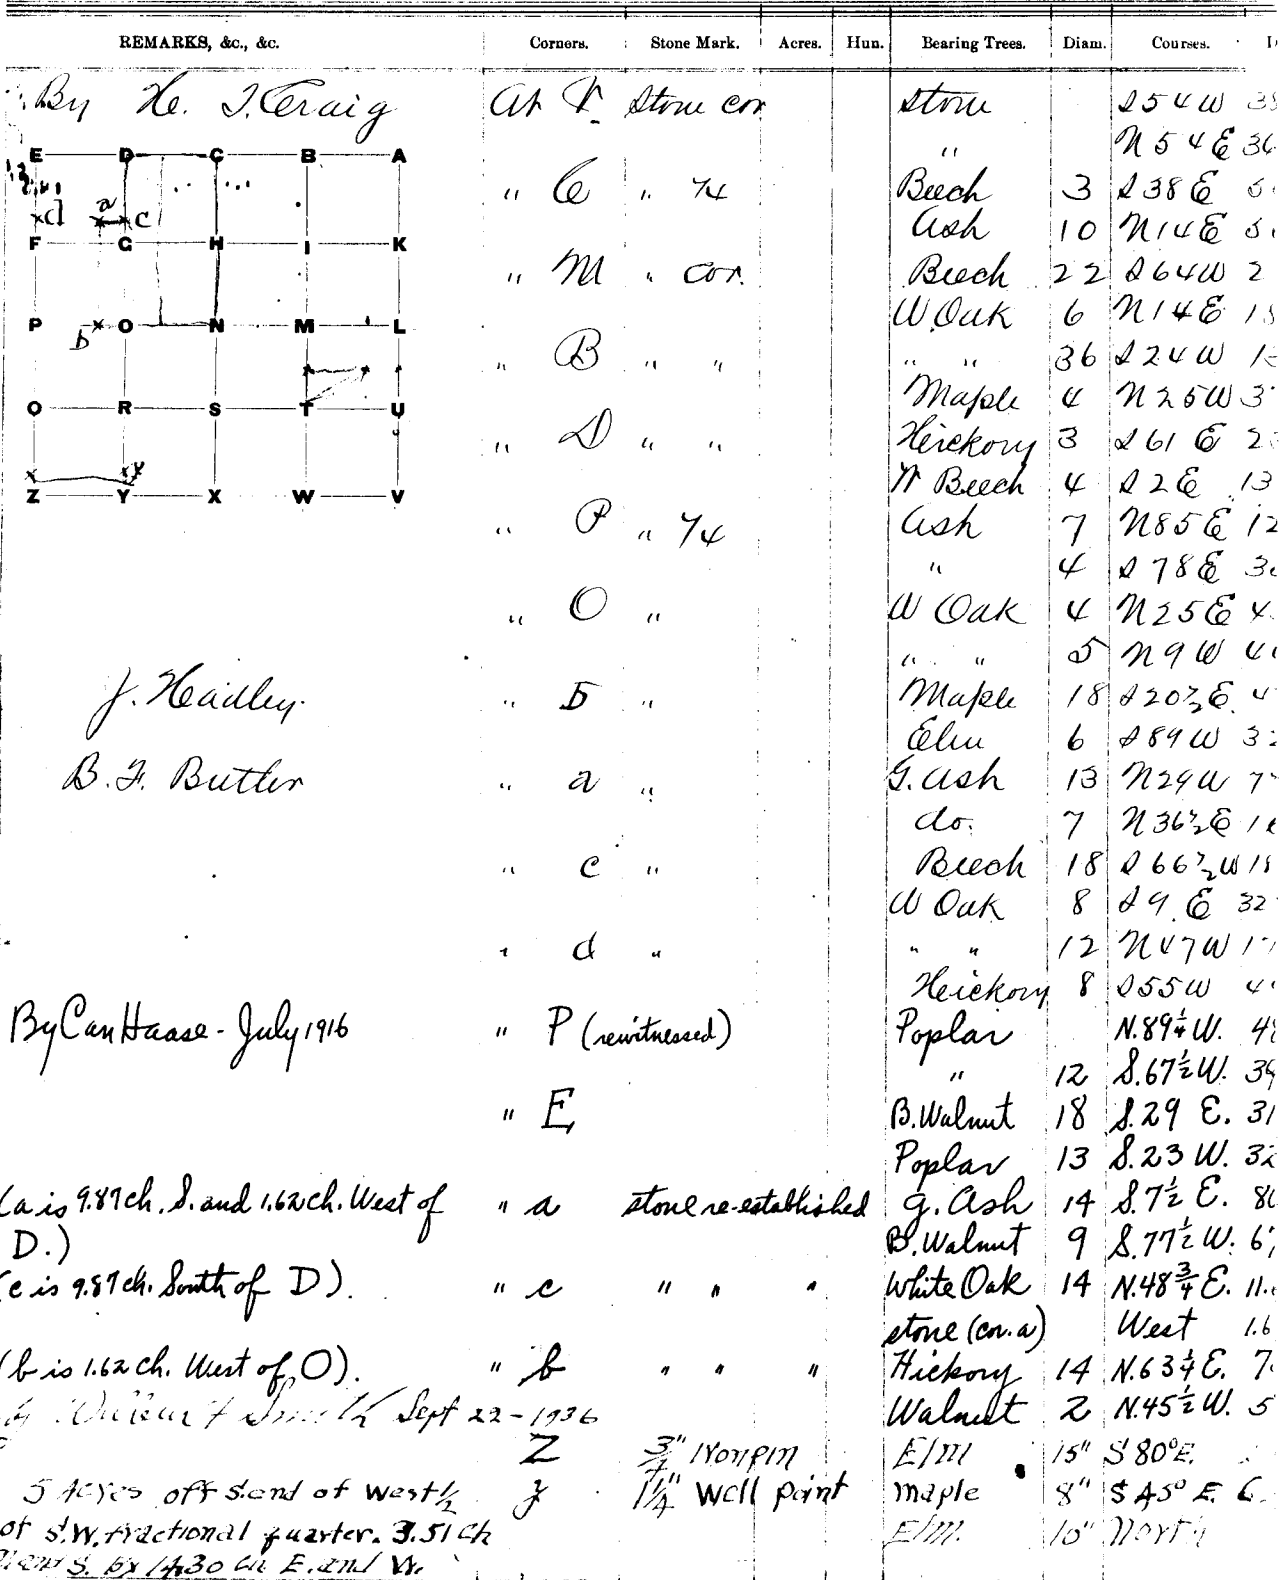 REMARKS, &c., &c. Corners. Stone Mark. Acres. Hun. Bearing Trees. Diam. Courses.
By H. T. Craig At T Stone cor stone S 54 W
E D C B A " N 54 E 36
" C " 1/4 Beech 3 S 38 E
d a c Ash 10 N 14 E
F G H I K
" M " cor. Beech 22 S 64 W 2
P b O N M L W Oak 6 N 14 E 18
" B " " " " 36 S 24 W
O R S T U Maple 4 N 25 W 3
" D " " Hickory 3 S 61 E 2
Z Y X W V Beech 4 S 2 E 13
" P " 1/4 Ash 7 N 85 E 12
" 4 S 78 E 3
" O " W Oak 4 N 25 E 4
" " 5 N 9 W 4
J. Headley. " b " Maple 18 S 20 1/2 E. 4
Elm 6 S 89 W 3
B. F. Butler " a " G. Ash 13 N 29 W 7
do. 7 N 36 1/2 E 1
" c " Beech 18 S 66 1/2 W 18
W Oak 8 S 9 E 32
" d " " " 12 N 47 W 17
Hickory 8 S 55 W 4
By Can Haase - July 1916 " P (rewitnessed) Poplar N. 89 1/4 W. 4
" 12 S. 67 1/2 W. 39
" E B. Walnut 18 S. 29 E. 31
Poplar 13 S. 23 W. 32
(a is 9.87 ch. S. and 1.62 ch. West of " a stone re-established G. Ash 14 S. 7 1/2 E. 8
D.) B. Walnut 9 S. 77 1/2 W. 6
(c is 9.87 ch. South of D). " c " " " White Oak 14 N. 48 3/4 E. 11.
stone (cor. a) West 1.6
(b is 1.62 ch. West of O). " b " " " Hickory 14 N. 63 1/4 E. 7
by Smith Sept 22-1936 Walnut 2 N. 45 1/2 W. 5
Z 3/4" Iron pin Elm 15" S 80° E.
5 Acres off S. end of West 1/2 y 1 1/4" Well point maple 8" S 45° E. 6
of S.W. fractional quarter. 3.51 ch Elm. 10" North
N and S. by 14.30 ch E. and W.